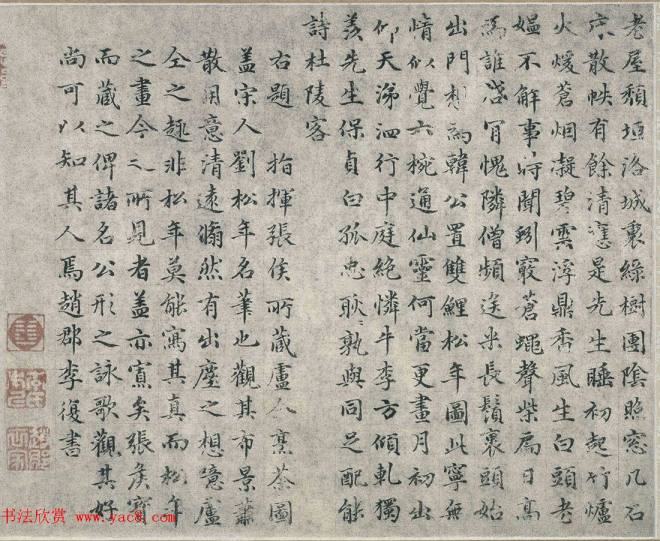 老屋頹垣洛城裏綠樹團陰照窓几石
床散帙有餘清應是先生睡初起竹爐
火煖蒼烟凝碧雲浮鼎香風生白頭老
媼不解事時聞蚓竅蒼蠅聲柴扉日高
為誰啓肎愧隣僧頻送米長鬚裹頭始
出門想為韓公置雙鯉松年圖此寧無
情似覺六椀通仙靈何當更畫月初出
仰天涕泗行中庭絕憐牛李方傾軋獨
羨先生保貞白孤忠耿耿孰與同足配能
詩杜陵客
右題 指揮張侯所藏盧仝烹茶圖
蓋宋人劉松年名筆也觀其布景蕭
散用意清遠翛然有出塵之想噫盧
仝之趣非松年莫能寫其真而松年
之畫今之所見者蓋亦寡矣張侯寶
而藏之俾諸名公形之詠歌觀其好
尚可以知其人焉趙郡李復書
书法欣赏 www.yac8.com